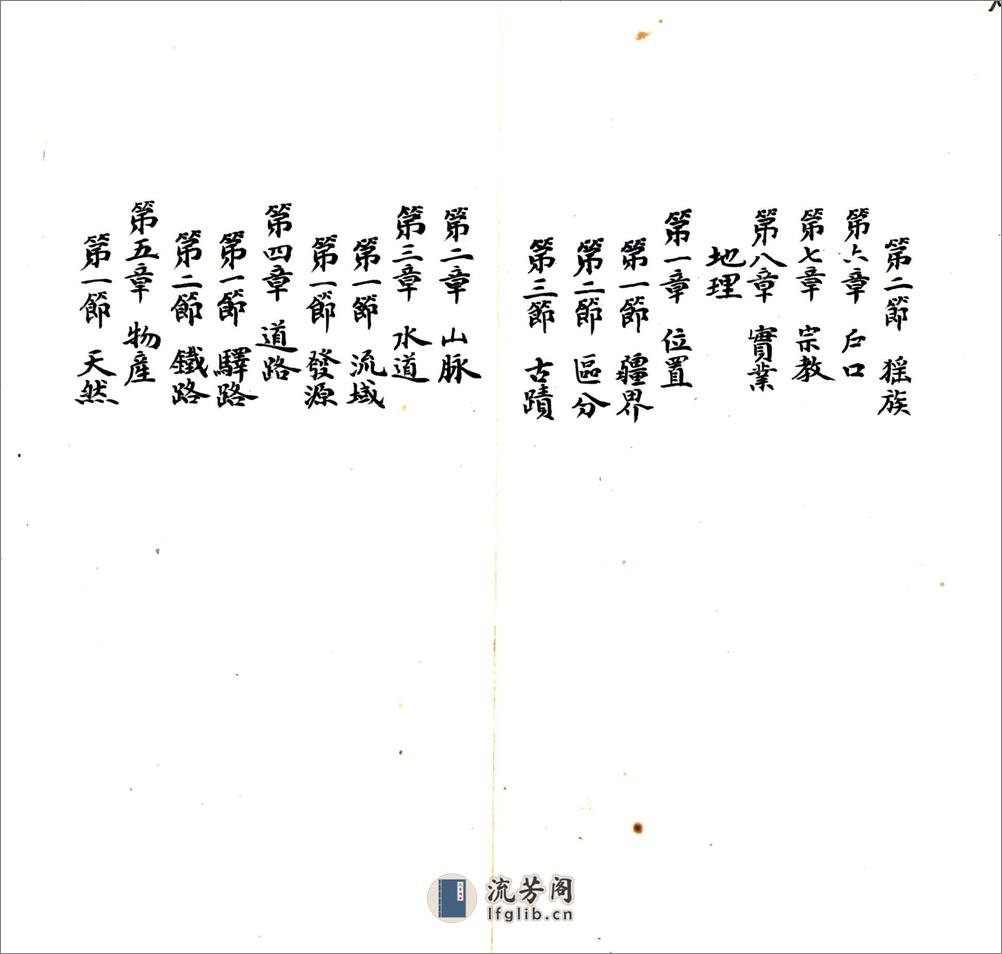 第二節 猺族
第六章 户口
第七章 宗教
第八章 實業
地理
第一章 位置
第一節 疆界
第二節 區分
第三節 古蹟
第二章 山脉
第三章 水道
第一節 流域
第一節 發源
第四章 道路
第一節 驛路
第二節 鐵路
第五章 物產
第一節 天然
流芳阁
lfglib.cn